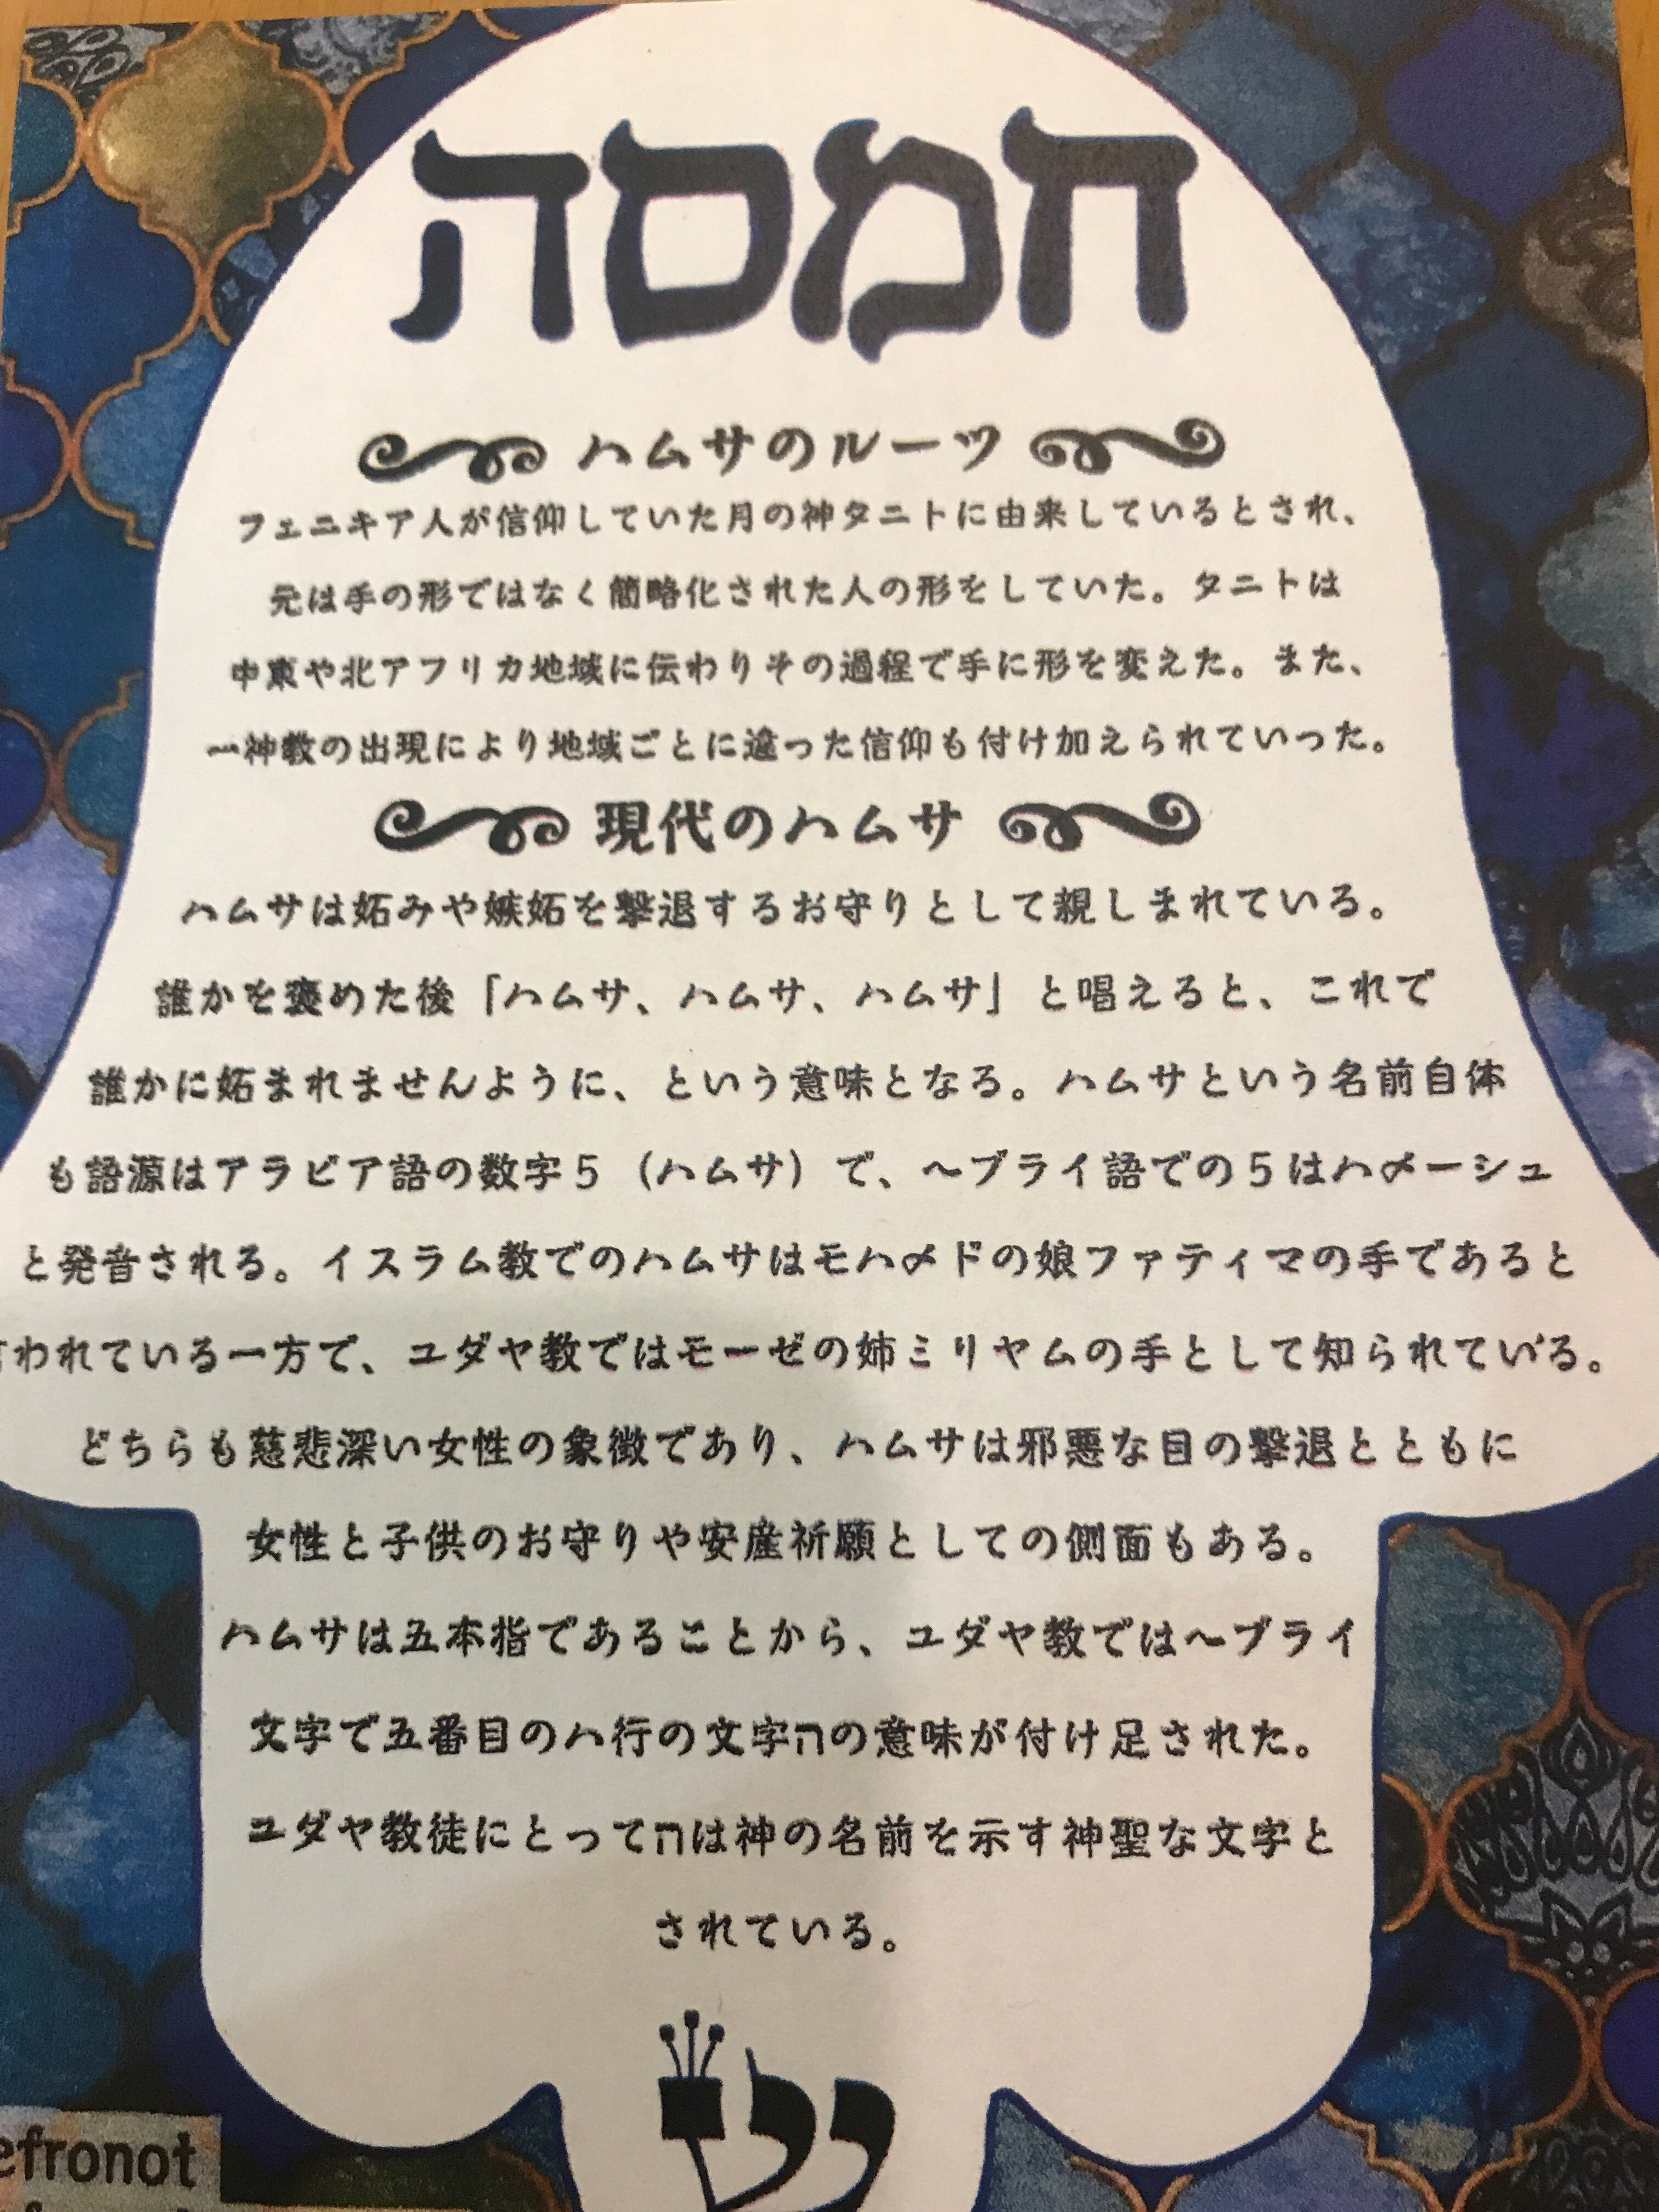 חמסה
ハムサのルーツ
フェニキア人が信仰していた月の神タニトに由来しているとされ、
元は手の形ではなく簡略化された人の形をしていた。タニトは
中東や北アフリカ地域に伝わりその過程で手に形を変えた。また、
一神教の出現により地域ごとに違った信仰も付け加えられていった。
現代のハムサ
ハムサは妬みや嫉妬を撃退するお守りとして親しまれている。
誰かを褒めた後「ハムサ、ハムサ、ハムサ」と唱えると、これで
誰かに妬まれませんように、という意味となる。ハムサという名前自体
も語源はアラビア語の数字5（ハムサ）で、ヘブライ語での5はハメーシュ
と発音される。イスラム教でのハムサはモハメドの娘ファティマの手であると
言われている一方で、ユダヤ教ではモーゼの姉ミリヤムの手として知られている。
どちらも慈悲深い女性の象徴であり、ハムサは邪悪な目の撃退とともに
女性と子供のお守りや安産祈願としての側面もある。
ハムサは五本指であることから、ユダヤ教ではヘブライ
文字で五番目のハ行の文字הの意味が付け足された。
ユダヤ教徒にとってהは神の名前を示す神聖な文字と
されている。
ש
efronot